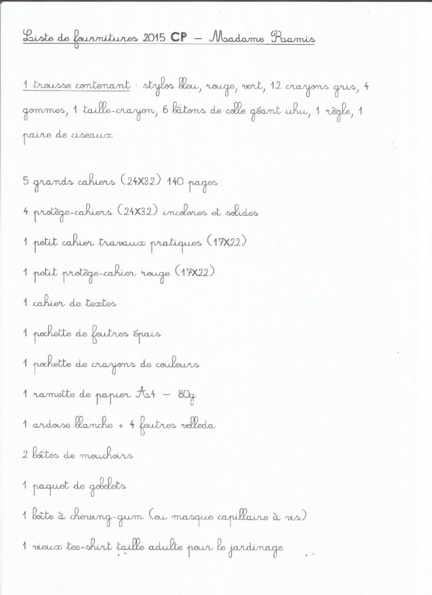 Liste de fournitures 2015 CP – Madame Ramis
1 trousse contenant : stylos bleu, rouge, vert, 12 crayons gris, 4
gommes, 1 taille-crayon, 6 bâtons de colle géant uhu, 1 règle, 1
paire de ciseaux
5 grands cahiers (24X32) 140 pages
4 protège-cahiers (24X32) incolores et solides
1 petit cahier travaux pratiques (17X22)
1 petit protège-cahier rouge (17X22)
1 cahier de textes
1 pochette de feutres épais
1 pochette de crayons de couleurs
1 ramette de papier A4 – 80g
1 ardoise blanche + 4 feutres velleda
2 boîtes de mouchoirs
1 paquet de gobelets
1 boîte à chewing-gum (ou masque capillaire à vis)
1 vieux tee-shirt taille adulte pour le jardinage